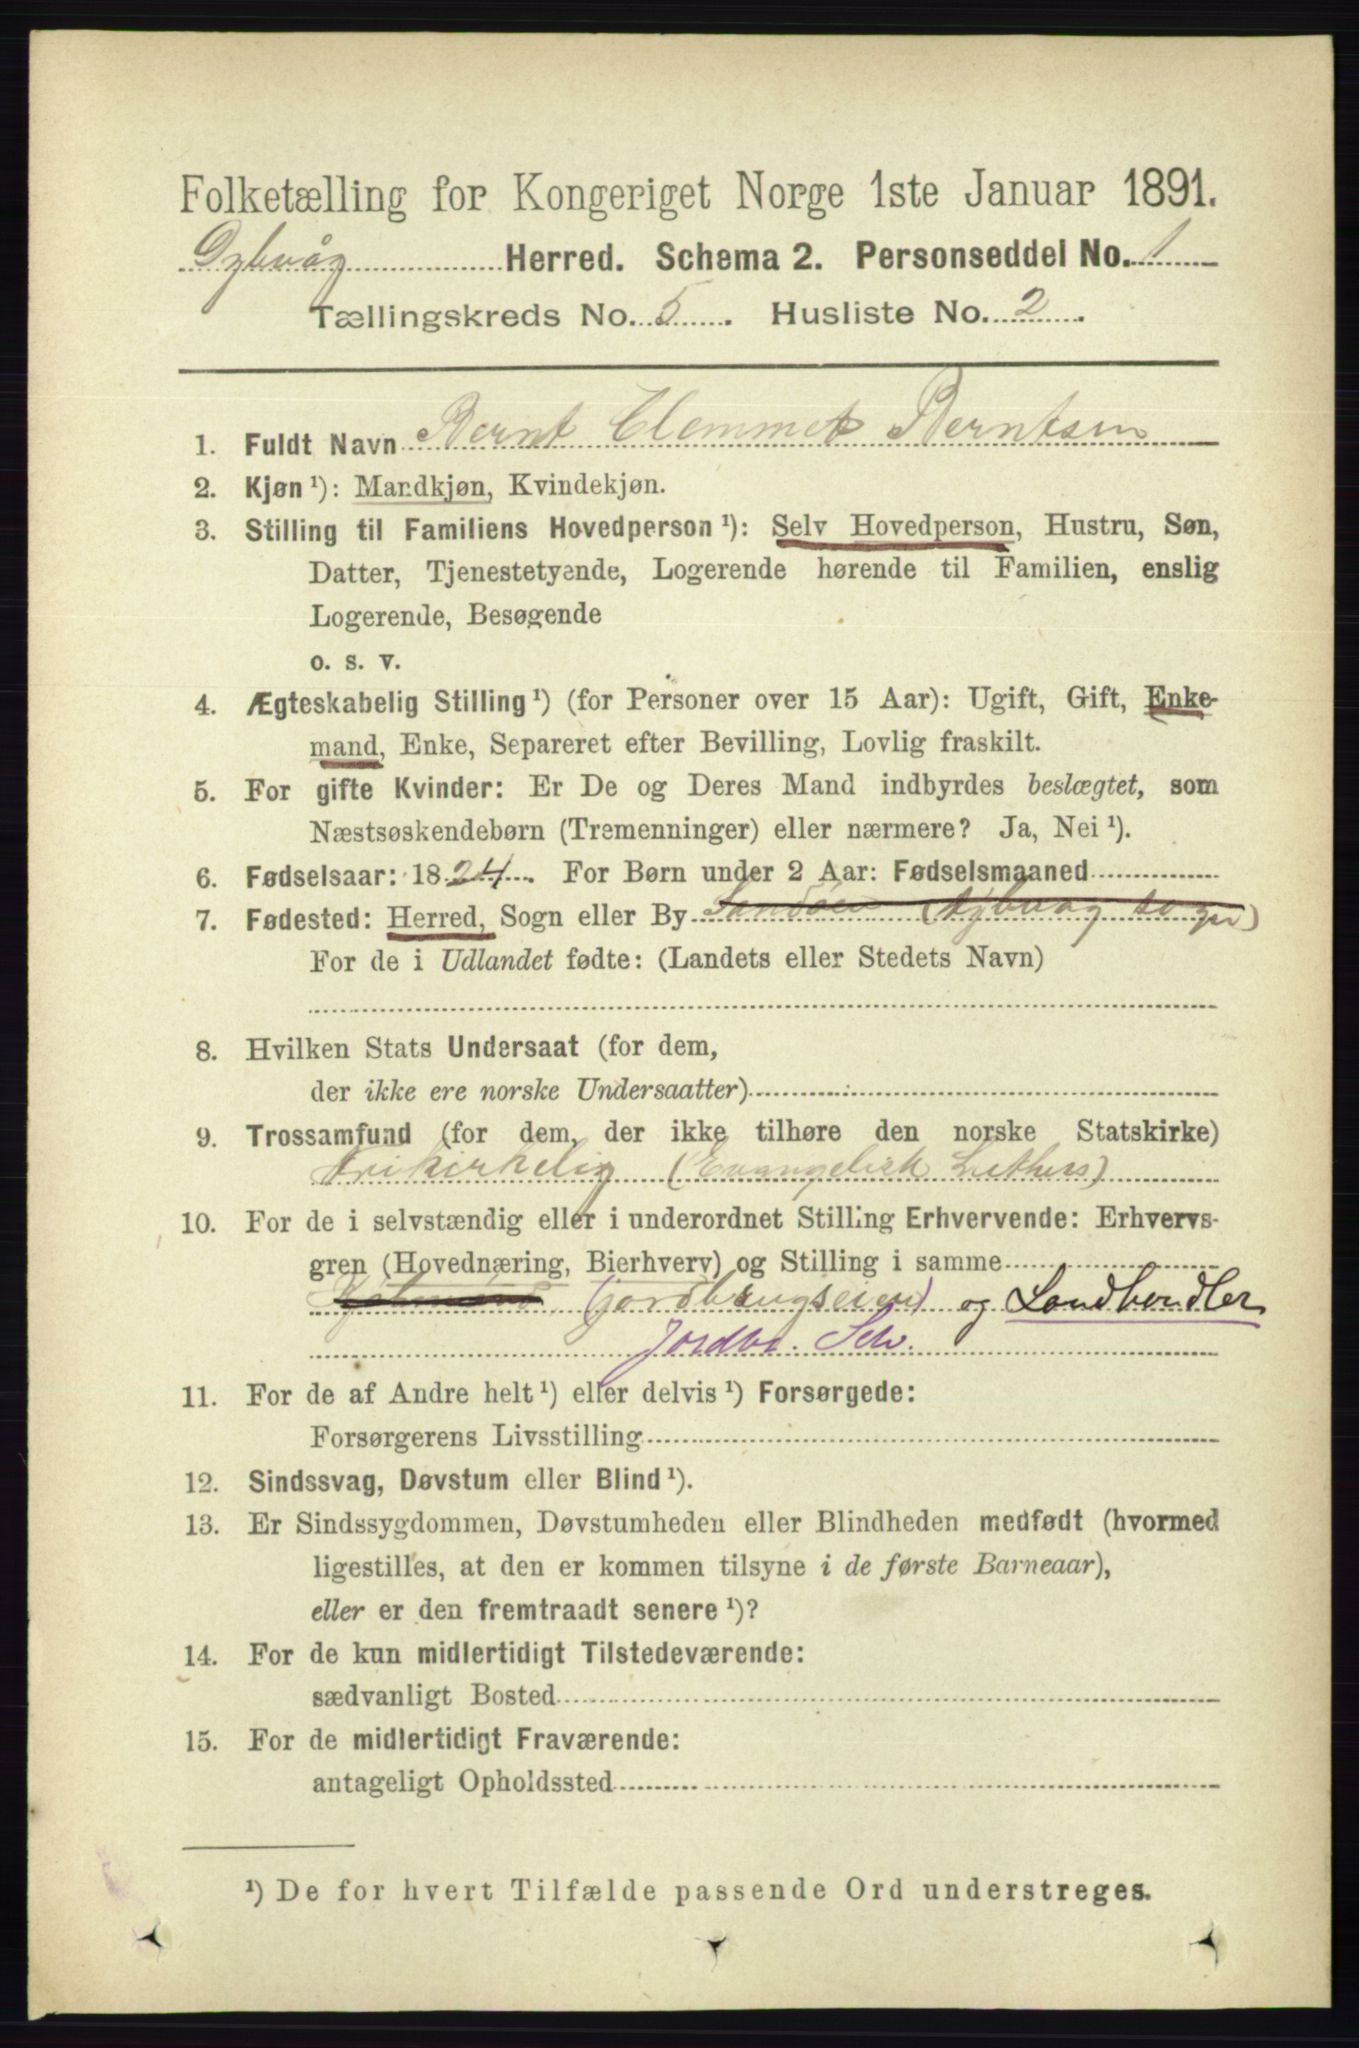 Folketælling for Kongeriget Norge 1ste Januar 1891.
Dybvåg Herred. Schema 2. Personseddel No. 1
Tællingskreds No. 5. Husliste No. 2.
1. Fuldt Navn Bernt Clemmet Berntsen
2. Kjøn ¹): Mandkjøn, Kvindekjøn.
3. Stilling til Familiens Hovedperson ¹): Selv Hovedperson, Hustru, Søn,
Datter, Tjenestetyende, Logerende hørende til Familien, enslig
Logerende, Besøgende
o. s. v.
4. Ægteskabelig Stilling ¹) (for Personer over 15 Aar): Ugift, Gift, Enke-
mand, Enke, Separeret efter Bevilling, Lovlig fraskilt.
5. For gifte Kvinder: Er De og Deres Mand indbyrdes beslægtet, som
Næstsøskendebørn (Tremenninger) eller nærmere? Ja, Nei ¹).
6. Fødselsaar: 1824. For Børn under 2 Aar: Fødselsmaaned
7. Fødested: Herred, Sogn eller By Sandøen (Dybvåg sogn)
For de i Udlandet fødte: (Landets eller Stedets Navn)
8. Hvilken Stats Undersaat (for dem,
der ikke ere norske Undersaatter)
9. Trossamfund (for dem, der ikke tilhøre den norske Statskirke)
Frikirkelig (Evangelisk Luthers)
10. For de i selvstændig eller i underordnet Stilling Erhvervende: Erhvervs-
gren (Hovednæring, Bierhverv) og Stilling i samme
(jordbrugseier) og Landhandler
Jordbr. Selv.
11. For de af Andre helt ¹) eller delvis ¹) Forsørgede:
Forsørgerens Livsstilling
12. Sindssvag, Døvstum eller Blind ¹).
13. Er Sindssygdommen, Døvstumheden eller Blindheden medfødt (hvormed
ligestilles, at den er kommen tilsyne i de første Barneaar),
eller er den fremtraadt senere ¹)?
14. For de kun midlertidigt Tilstedeværende:
sædvanligt Bosted
15. For de midlertidigt Fraværende:
antageligt Opholdssted
¹) De for hvert Tilfælde passende Ord understreges.